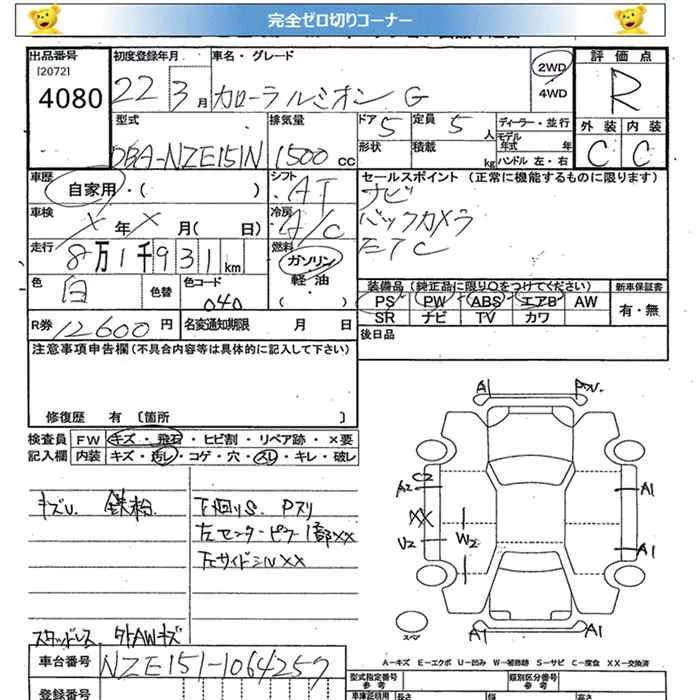 完全ゼロ切りコーナー
出品番号 初度登録年月 車名・グレード 2WD 評価点
[2072]
4080 22 3月 カローラルミオン G 4WD R
型式 排気量 ドア 5 定員 5人 ディーラー・並行 外装 内装
DBA-NZE151N 1500cc 形状 積載 kg モデル年式 年 C C
ハンドル 左・右
車歴 自家用・( ) シフト AT セールスポイント (正常に機能するものに限ります)
車検 X年X月( 日) 冷房 A/C ナビ
バックカメラ
走行 8万1千931km 燃料 ガソリン・軽油・( ) ETC
色 白 色替 色コード 040 装備品(純正品に限り○をつけてください) 新車保証書
PS PW ABS エアB AW 有・無
SR ナビ TV カワ
R券 12600円 名変通知期限 月 日 後日品
注意事項申告欄(不具合内容等は具体的に記入して下さい)
修復歴 有 〔箇所 〕
検査員 FW キズ・飛石・ヒビ割・リペア跡・×要
記入欄 内装 キズ・汚レ・コゲ・穴・スレ・キレ・破レ
キズU 鉄粉 下回りS Pスリ
左センターピラー1部XX
左サイドシルXX
スタッドレス 外AWキズ
A1
A2 C2
XX
U2
W2
A1
A1
A1 A1
スペア
A-キズ E-エクボ U-凹み W-補修跡 S-サビ C-腐食 XX-交換済
車台番号 NZE151-1064257 型式指定番号 類別区分番号
参考 参考
登録番号 車庫証明用 長さ 幅 高さ